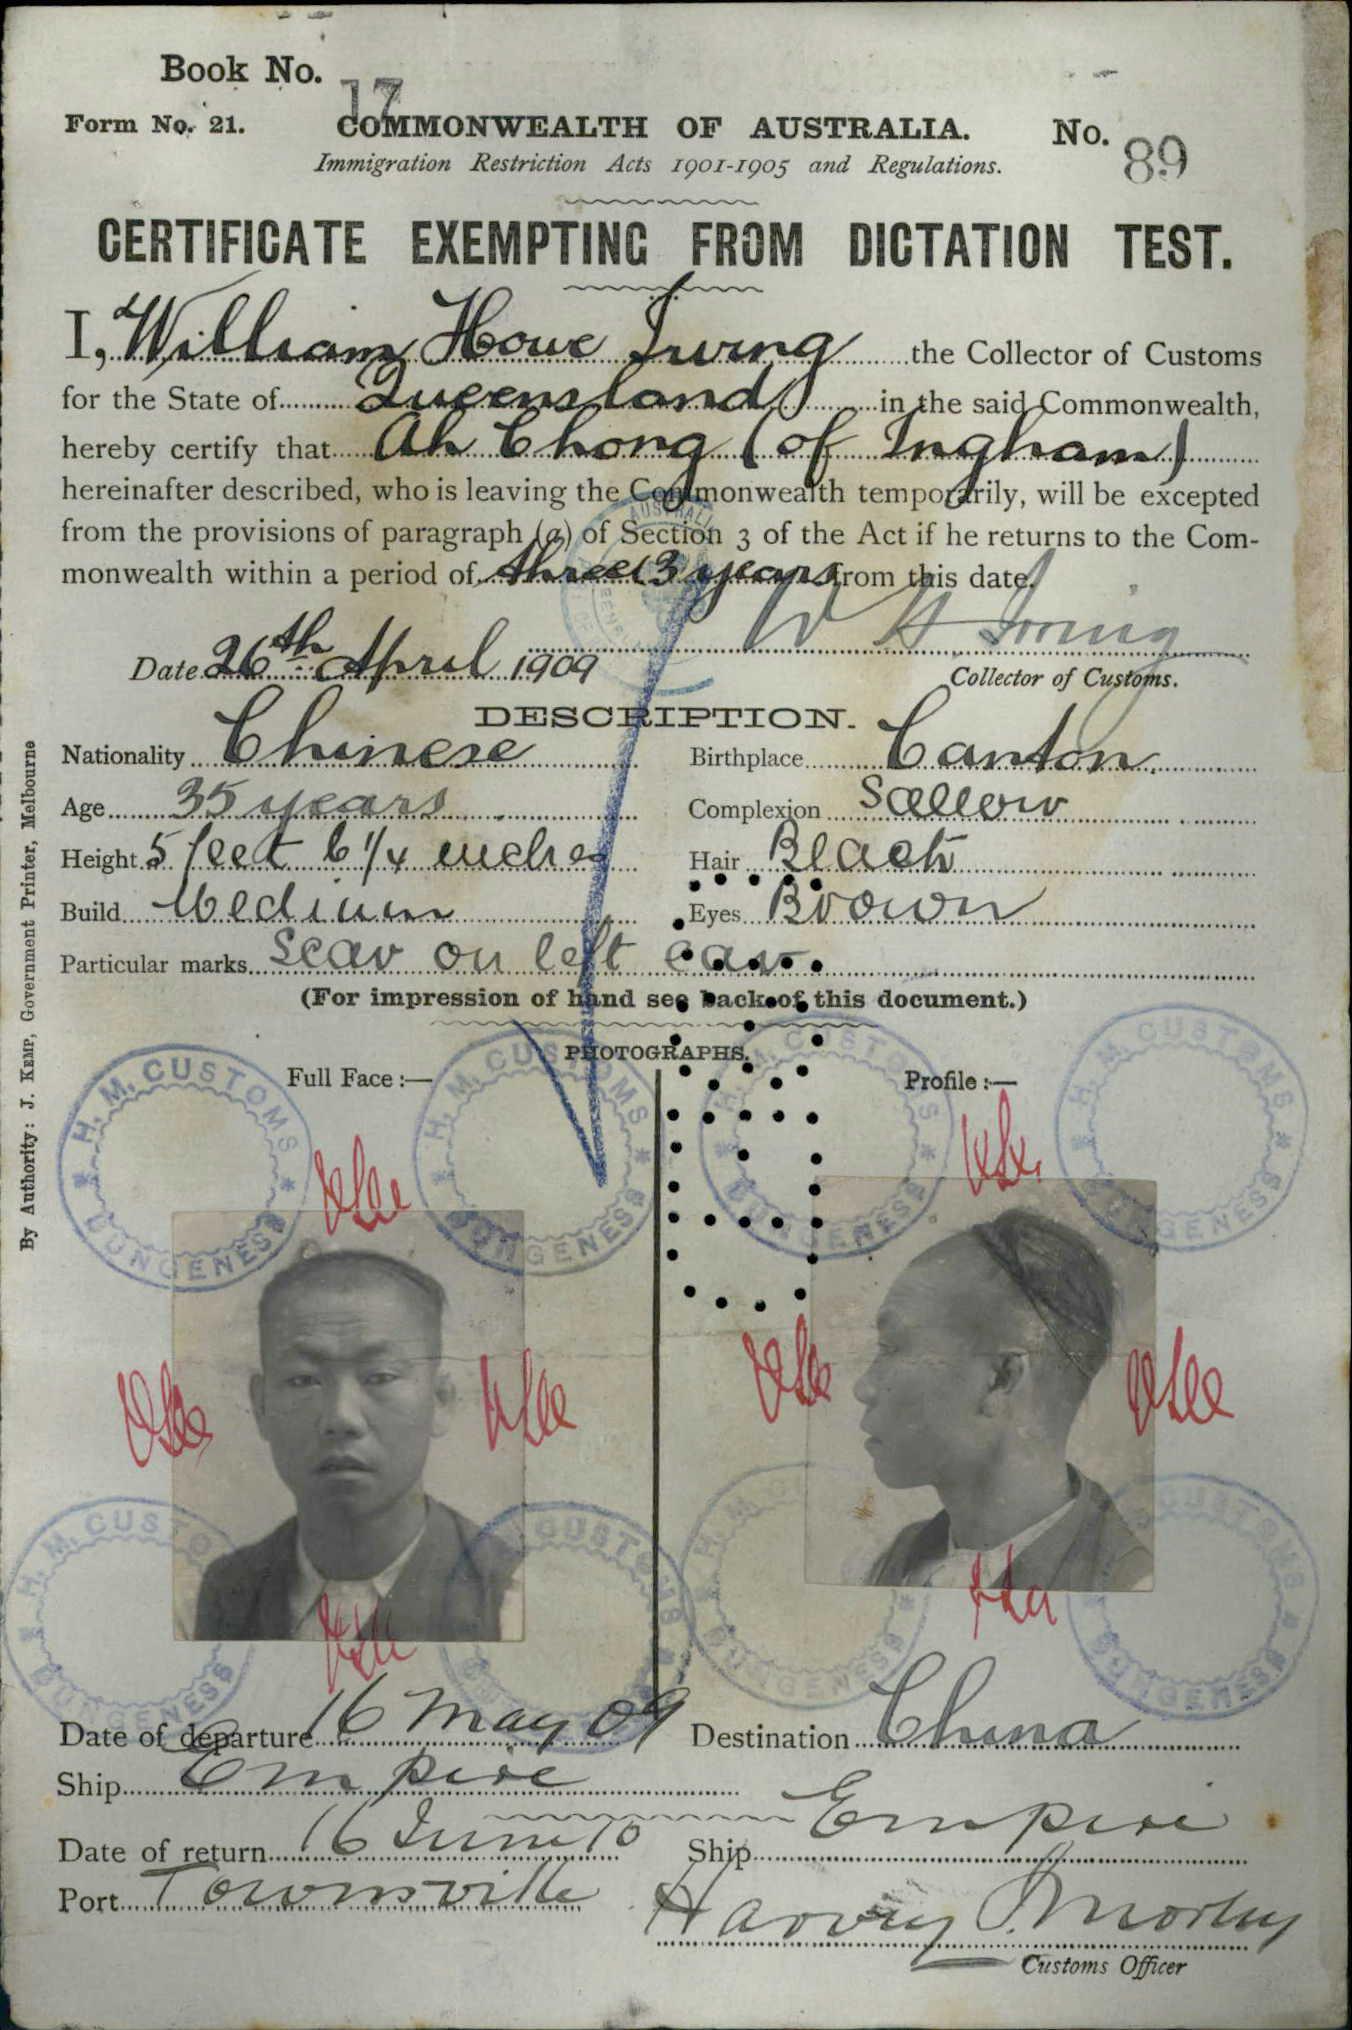 Book No. 17
Form No. 21. COMMONWEALTH OF AUSTRALIA. No. 89
Immigration Restriction Acts 1901-1905 and Regulations.
CERTIFICATE EXEMPTING FROM DICTATION TEST.
I, William Howe Irving the Collector of Customs
for the State of Queensland in the said Commonwealth,
hereby certify that Ah Chong (of Ingham)
hereinafter described, who is leaving the Commonwealth temporarily, will be excepted
from the provisions of paragraph (a) of Section 3 of the Act if he returns to the Com-
monwealth within a period of three (3 years from this date.
W H Irving
Date 26th April 1909 Collector of Customs.
DESCRIPTION.
Nationality Chinese Birthplace Canton.
Age 35 years Complexion Sallow
Height 5 feet 6 1/4 inches Hair Black
Build Medium Eyes Brown
Particular marks Scar on left ear
(For impression of hand see back of this document.)
PHOTOGRAPHS.
Full Face :— Profile :—
H. M. CUSTOMS
H. M. CUSTOMS
H. M. CUSTOMS
H. M. CUSTOMS
H. M. CUSTOMS
H. M. CUSTOMS
H. M. CUSTOMS
Date of departure 16 May 09 Destination China
Ship Empire
Date of return 16 June 10 Ship Empire
Port Townsville
Harvey J. Morley
Customs Officer
By Authority: J. KEMP, Government Printer, Melbourne